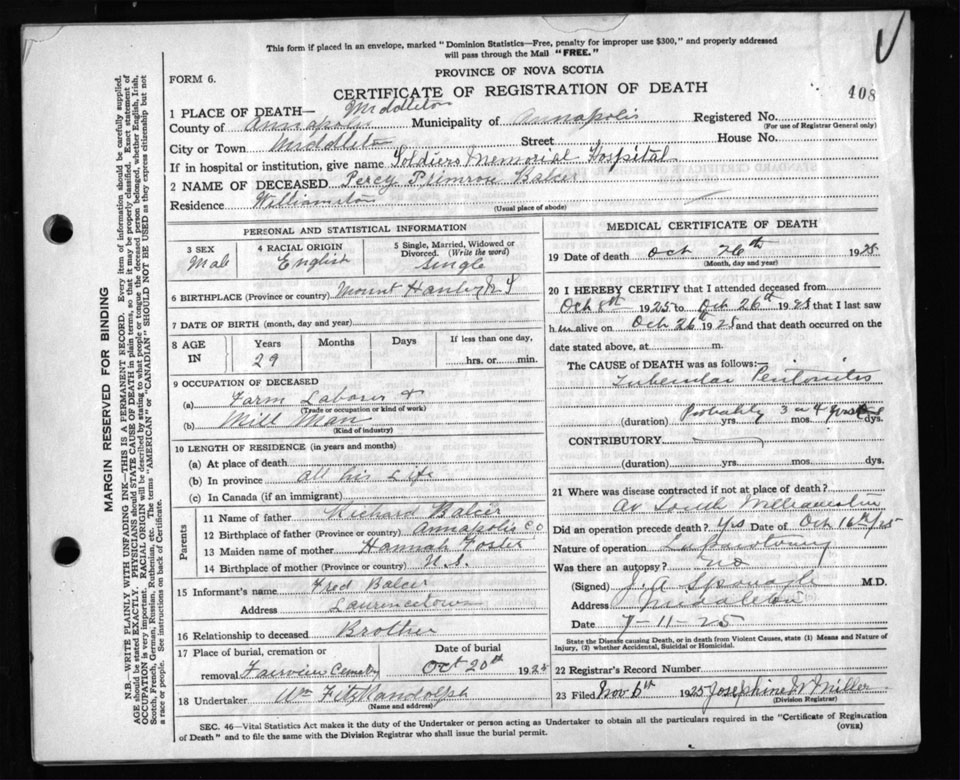 This form if placed in an envelope, marked "Dominion Statistics—Free, penalty for improper use $300," and properly addressed
will pass through the Mail "FREE."
PROVINCE OF NOVA SCOTIA
FORM 6.
CERTIFICATE OF REGISTRATION OF DEATH
408
1 PLACE OF DEATH— Middleton
County of Annapolis Municipality of Annapolis Registered No.
(For use of Registrar General only)
City or Town Middleton Street House No.
If in hospital or institution, give name Soldiers Memorial Hospital
2 NAME OF DECEASED Percy Primrose Balcer
Residence Williamston
(Usual place of abode)
PERSONAL AND STATISTICAL INFORMATION
3 SEX
Male
4 RACIAL ORIGIN
English
5 Single, Married, Widowed or
Divorced. (Write the word)
Single
6 BIRTHPLACE (Province or country) Mount Hanley N S
7 DATE OF BIRTH (month, day and year)
8 AGE
IN
Years
29
Months
Days
If less than one day,
hrs. or min.
9 OCCUPATION OF DECEASED
(a) Farm Laborer &
(Trade or occupation or kind of work)
(b) Mill Man
(Kind of industry)
10 LENGTH OF RESIDENCE (in years and months)
(a) At place of death
(b) In province all his Life
(c) In Canada (if an immigrant)
Parents
11 Name of father Richard Balcer
12 Birthplace of father (Province or country) Annapolis Co
13 Maiden name of mother Hannah Foster
14 Birthplace of mother (Province or country) N.S.
15 Informant's name Fred Balcer
Address Laurencetown
16 Relationship to deceased Brother
17 Place of burial, cremation or
removal Fairview Cemetery
Date of burial
Oct 20th 1925
18 Undertaker Wm FitzRandolph
(Name and address)
MEDICAL CERTIFICATE OF DEATH
19 Date of death Oct 26th 1925
(Month, day and year)
20 I HEREBY CERTIFY that I attended deceased from
Oct 8th 1925 to Oct 26th 1925 that I last saw
him alive on Oct 26th 1925 and that death occurred on the
date stated above, at m.
The CAUSE of DEATH was as follows:—
Tubercular Peritonitis
Probably 3 or 4
(duration) yrs. mos. dys.
CONTRIBUTORY
(duration) yrs. mos. dys.
21 Where was disease contracted if not at place of death?
At South Williamston
Did an operation precede death? Yes Date of Oct 16th/25
Nature of operation Laparotomy
Was there an autopsy? no
(Signed) J. A. Sponagle M.D.
Address Middleton
Date 7-11-25
State the Disease causing Death, or in death from Violent Causes, state (1) Means and Nature of
Injury, (2) whether Accidental, Suicidal or Homicidal.
22 Registrar's Record Number
23 Filed Nov 6th 1925 Josephine W Miller
(Division Registrar)
SEC. 46—Vital Statistics Act makes it the duty of the Undertaker or person acting as Undertaker to obtain all the particulars required in the "Certificate of Registration
of Death" and to file the same with the Division Registrar who shall issue the burial permit.
(OVER)
MARGIN RESERVED FOR BINDING
N.B.—WRITE PLAINLY WITH UNFADING INK—THIS IS A PERMANENT RECORD. Every item of information should be carefully supplied.
AGE should be stated EXACTLY. PHYSICIANS should STATE CAUSE OF DEATH in plain terms, so that it may be properly classified. Exact statement of
OCCUPATION is very important. RACIAL ORIGIN will be described by stating to what people or tongue the deceased person belonged, whether English, Irish,
Scotch, French, German, Russian, Ruthenian, etc. The terms "AMERICAN" or "CANADIAN" SHOULD NOT BE USED as they express citizenship but not
a race or people. See instructions on back of Certificate.